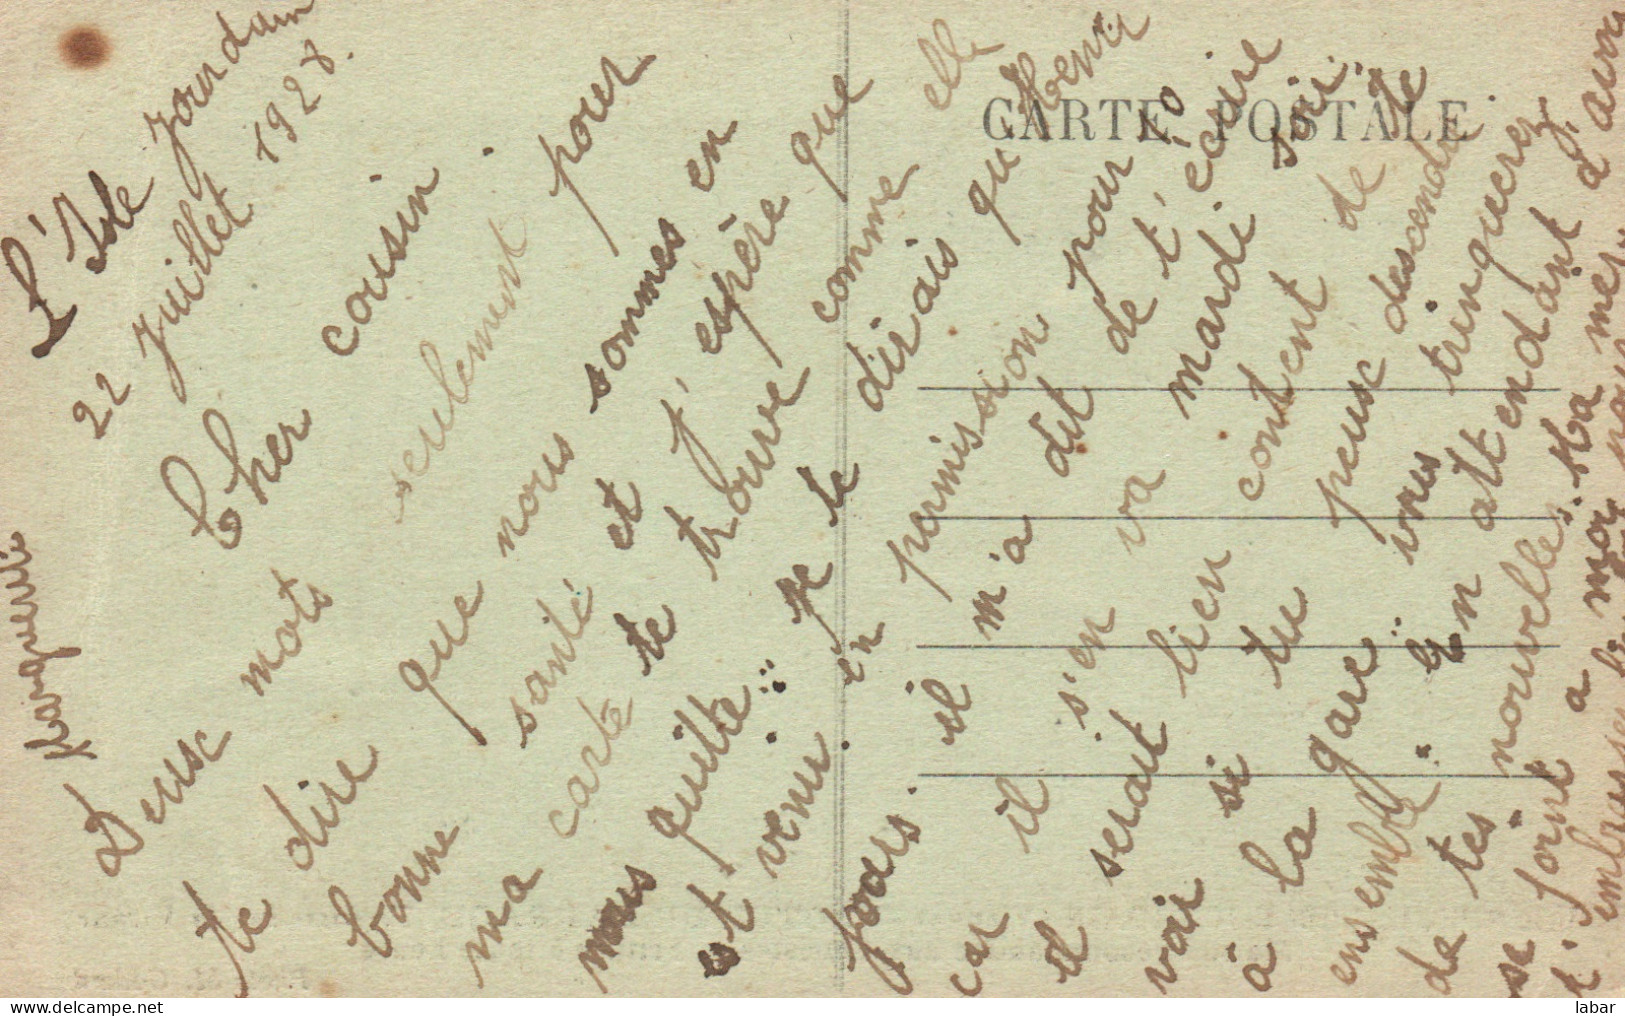 L'Isle Jourdain
22 Juillet 1928.
Cher cousin.
Deux mots seulement pour
te dire que nous sommes en
bonne santé et j'espère que
ma carte te trouve comme elle
nous quitte. Je te dirais qu'Henri
est venir en permission pour 10
jours. il m'a dit de t'écrire
car il s'en va mardi soir.
il serait bien content de te
voir si tu peux descendre
à la gare vous trinquerez
ensemble. En attendant
de tes nouvelles. Ma mère
se joint a moi
t'embrasser
Marguerite
CARTE POSTALE
labar